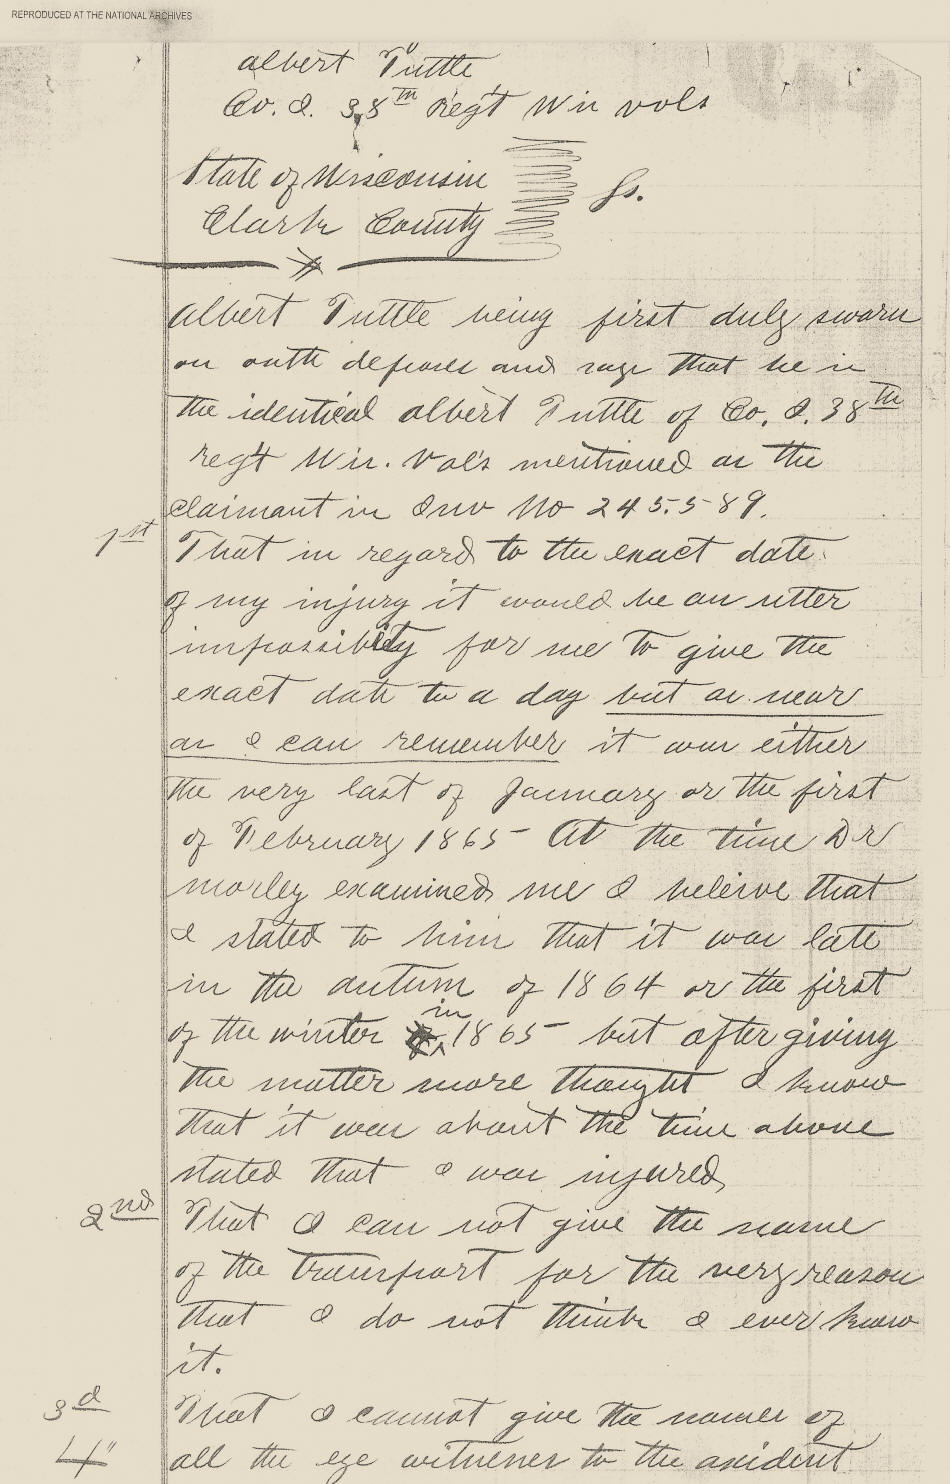 REPRODUCED AT THE NATIONAL ARCHIVES
Albert Tuttle
Co. I. 38th Reg't Wis vols
State of Wisconsin
Clark County
ss.
Albert Tuttle being first duly sworn
on outh deposes and says that he is
the identical Albert Tuttle of Co. I. 38th
Reg't Wis. Vol's mentioned as the
claimant in Inv No 245.589.
1st
That in regard to the exact date
of my injury it would be an utter
impossibility for me to give the
exact date to a day but as near
as I can remember it was either
the very last of January or the first
of February 1865 At the time Dr
Morley examined me I beleive that
I stated to him that it was late
in the autum of 1864 or the first
of the winter in 1865 but after giving
the matter more thought I know
that it was about the time above
stated that I was injured
2nd
That I can not give the name
of the transport for the very reason
that I do not think I ever knew
it.
3d
That I cannot give the names of
4"
all the eye witneses to the axident